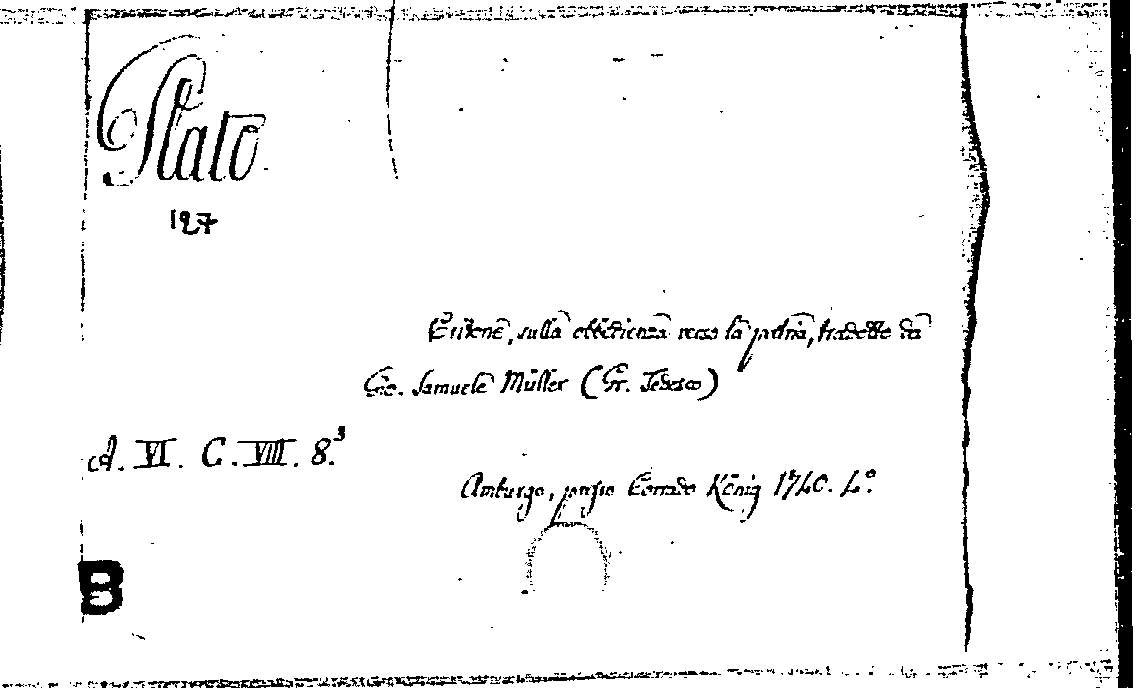 Plato.
127
Critone, sulla obbedienza verso la patria, tradotto da
Gio. Samuele Müller (Gr. Tedesco)
A. VI. C. VIII. 8.³
Amburgo, presso Corrado König 1740. 4.º
B